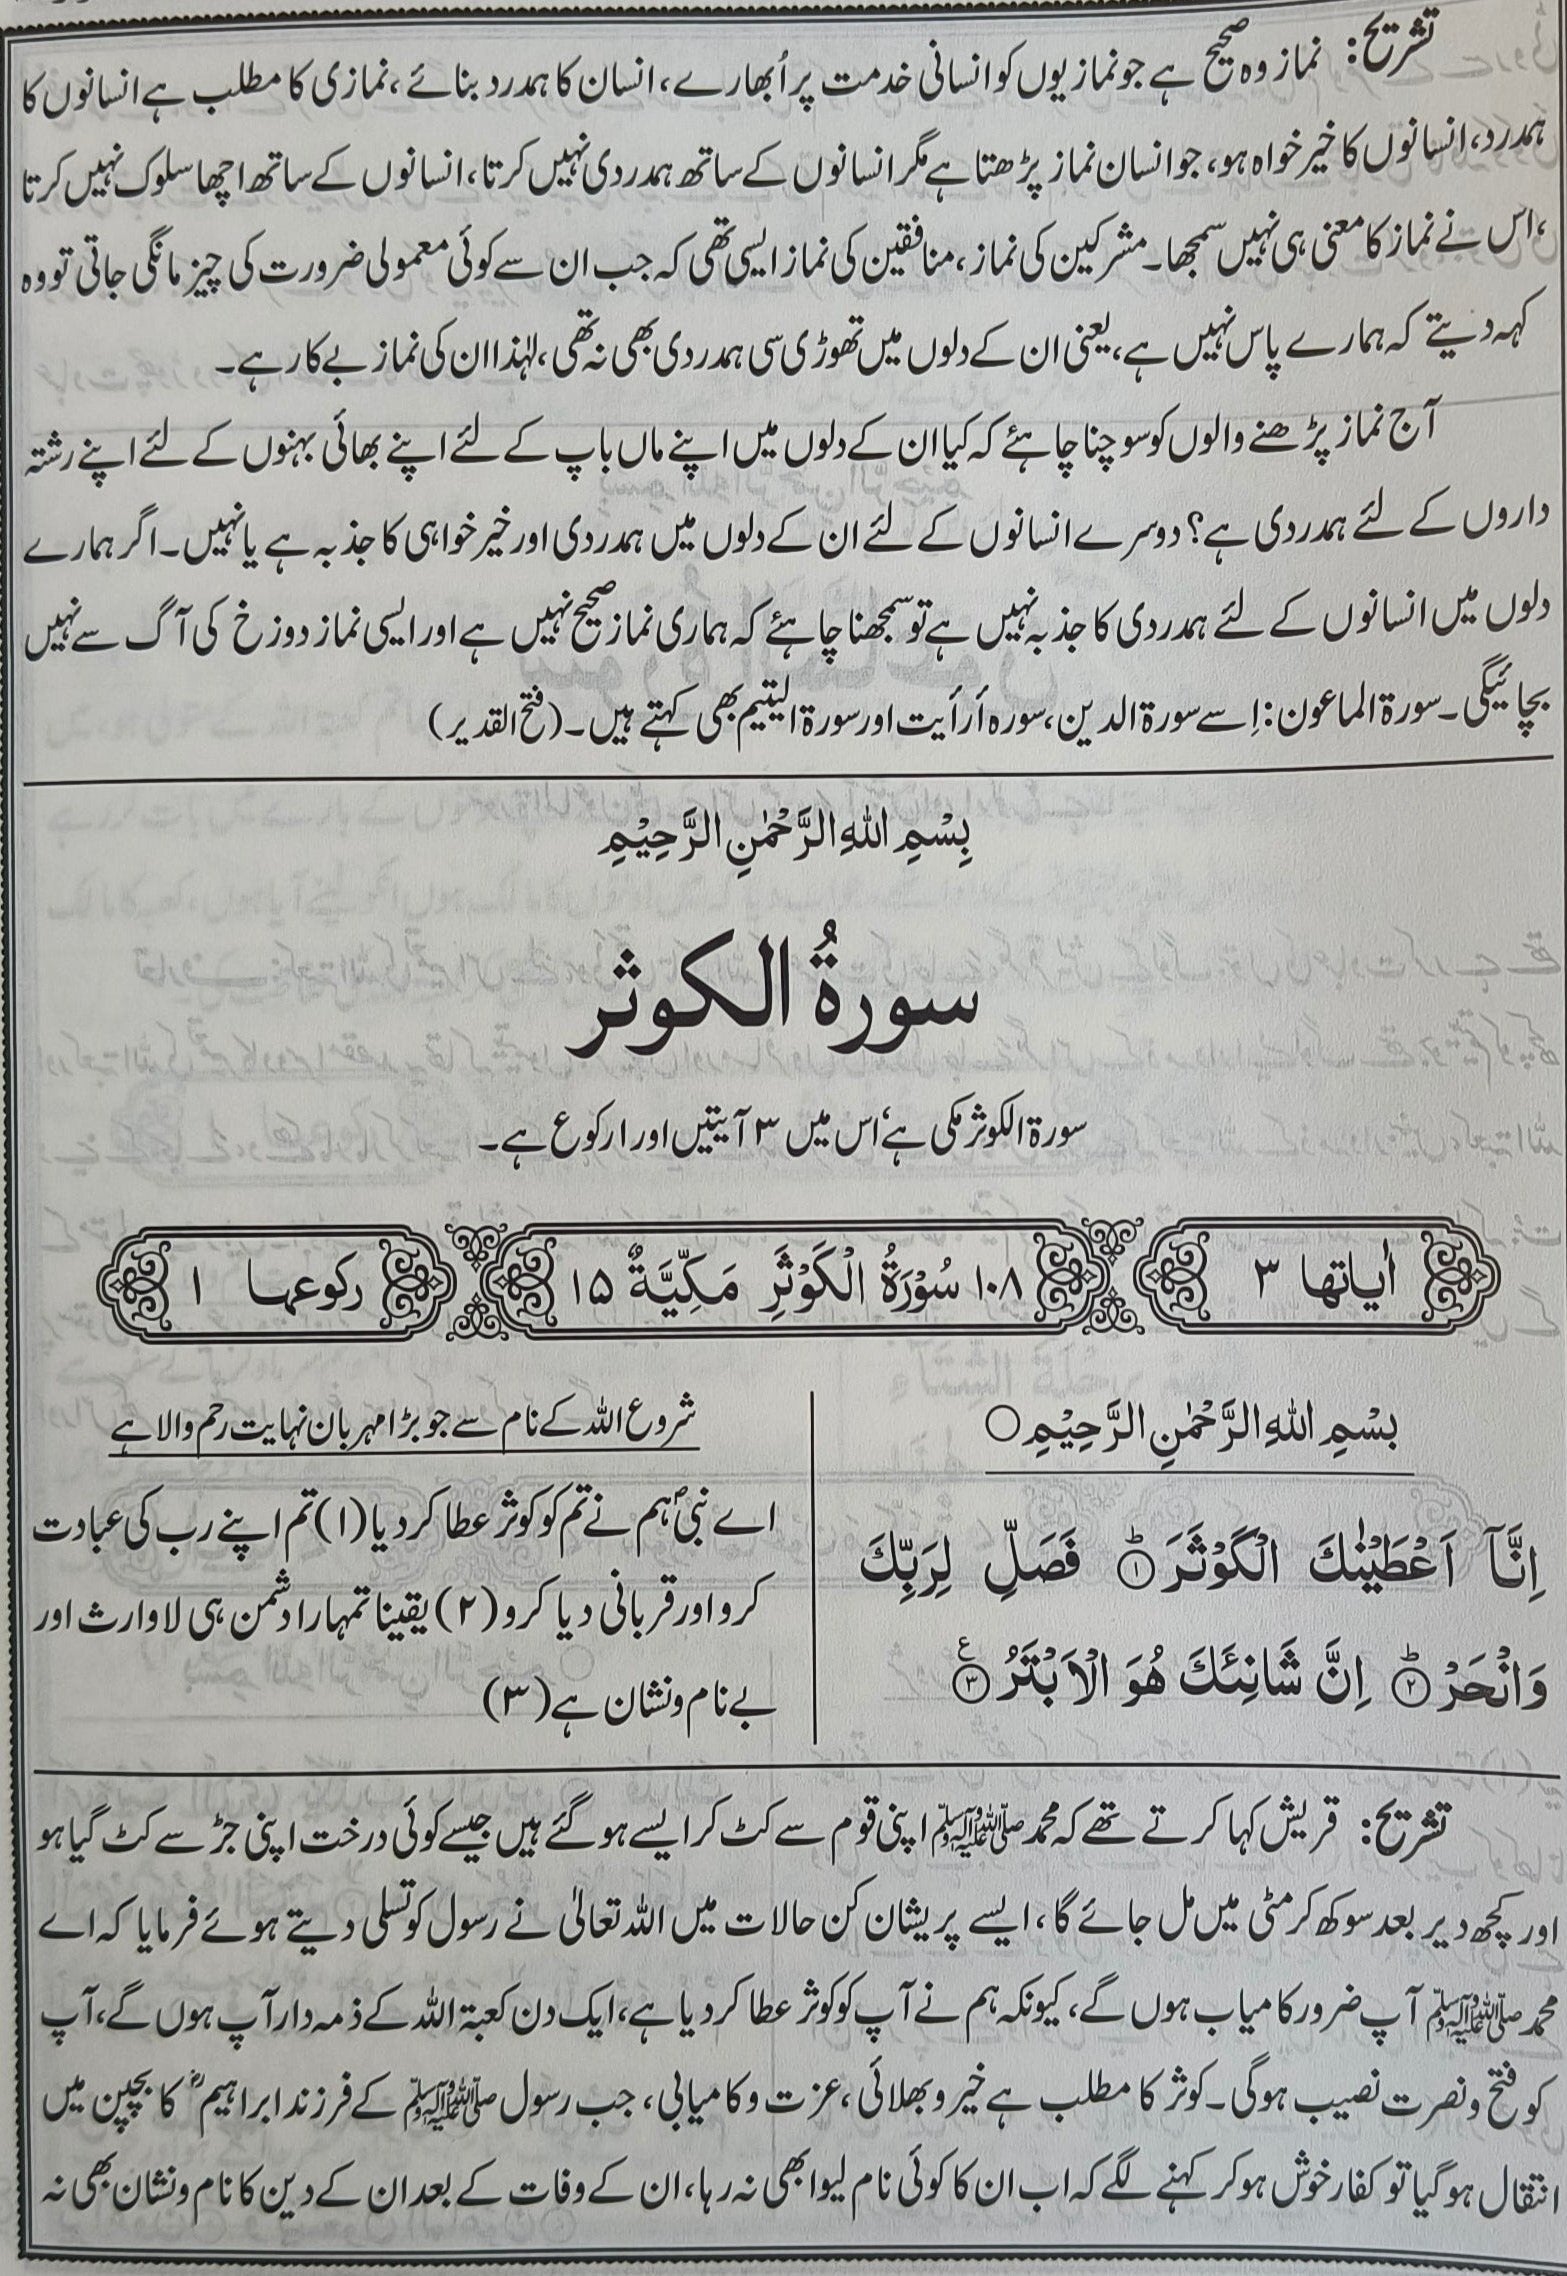 تشریح: نماز وہ صحیح ہے جو نمازیوں کو انسانی خدمت پر اُبھارے، انسان کا ہمدرد بنائے، نمازی کا مطلب ہے انسانوں کا
ہمدرد، انسانوں کا خیر خواہ ہو، جو انسان نماز پڑھتا ہے مگر انسانوں کے ساتھ ہمدردی نہیں کرتا، انسانوں کے ساتھ اچھا سلوک نہیں کرتا
،اس نے نماز کا معنی ہی نہیں سمجھا۔ مشرکین کی نماز، منافقین کی نماز ایسی تھی کہ جب ان سے کوئی معمولی ضرورت کی چیز مانگی جاتی تو وہ
کہہ دیتے کہ ہمارے پاس نہیں ہے، یعنی ان کے دلوں میں تھوڑی سی ہمدردی بھی نہ تھی، لہٰذا ان کی نماز بے کار ہے۔
آج نماز پڑھنے والوں کو سوچنا چاہئے کہ کیا ان کے دلوں میں اپنے ماں باپ کے لئے اپنے بھائی بہنوں کے لئے اپنے رشتہ
داروں کے لئے ہمدردی ہے؟ دوسرے انسانوں کے لئے ان کے دلوں میں ہمدردی اور خیر خواہی کا جذبہ ہے یا نہیں۔ اگر ہمارے
دلوں میں انسانوں کے لئے ہمدردی کا جذبہ نہیں ہے تو سمجھنا چاہئے کہ ہماری نماز صحیح نہیں ہے اور ایسی نماز دوزخ کی آگ سے نہیں
بچائیگی۔ سورۃ الماعون: اِسے سورۃ الدین، سورہ أرأیت اور سورۃ الیتیم بھی کہتے ہیں۔ (فتح القدیر)
بِسْمِ اللّٰهِ الرَّحْمٰنِ الرَّحِيْمِ
سورۃُ الکوثر
سورۃ الکوثر مکی ہے‘ اس میں ۳ آیتیں اور ۱ رکوع ہے۔
اٰیاتھا ۳ ۱۰۸ سُوْرَۃُ الْکَوْثَرِ مَکِّیَّۃٌ ۱۵ رکوعہا ۱
بِسْمِ اللّٰهِ الرَّحْمٰنِ الرَّحِيْمِ○
اِنَّآ اَعْطَیْنٰكَ الْكَوْثَرَ ؕ۱ فَصَلِّ لِرَبِّكَ
وَانْحَرْ ؕ۲ اِنَّ شَانِئَكَ هُوَ الْاَبْتَرُ ۳ ع
شروع اللہ کے نام سے جو بڑا مہربان نہایت رحم والا ہے
اے نبیؐ ہم نے تم کو کوثر عطا کر دیا (۱) تم اپنے رب کی عبادت
کرو اور قربانی دیا کرو (۲) یقینا تمہارا دشمن ہی لاوارث اور
بے نام ونشان ہے (۳)
تشریح: قریش کہا کرتے تھے کہ محمد ﷺ اپنی قوم سے کٹ کر ایسے ہو گئے ہیں جیسے کوئی درخت اپنی جڑ سے کٹ گیا ہو
اور کچھ دیر بعد سوکھ کر مٹی میں مل جائے گا، ایسے پریشان کن حالات میں اللہ تعالیٰ نے رسول کو تسلی دیتے ہوئے فرمایا کہ اے
محمد ﷺ آپ ضرور کامیاب ہوں گے، کیونکہ ہم نے آپ کو کوثر عطا کر دیا ہے، ایک دن کعبۃ اللہ کے ذمہ دار آپ ہوں گے، آپ
کو فتح ونصرت نصیب ہوگی۔ کوثر کا مطلب ہے خیر و بھلائی، عزت و کامیابی، جب رسول ﷺ کے فرزند ابراہیمؓ کا بچپن میں
انتقال ہو گیا تو کفار خوش ہو کر کہنے لگے کہ اب ان کا کوئی نام لیوا بھی نہ رہا، ان کے وفات کے بعد ان کے دین کا نام ونشان بھی نہ